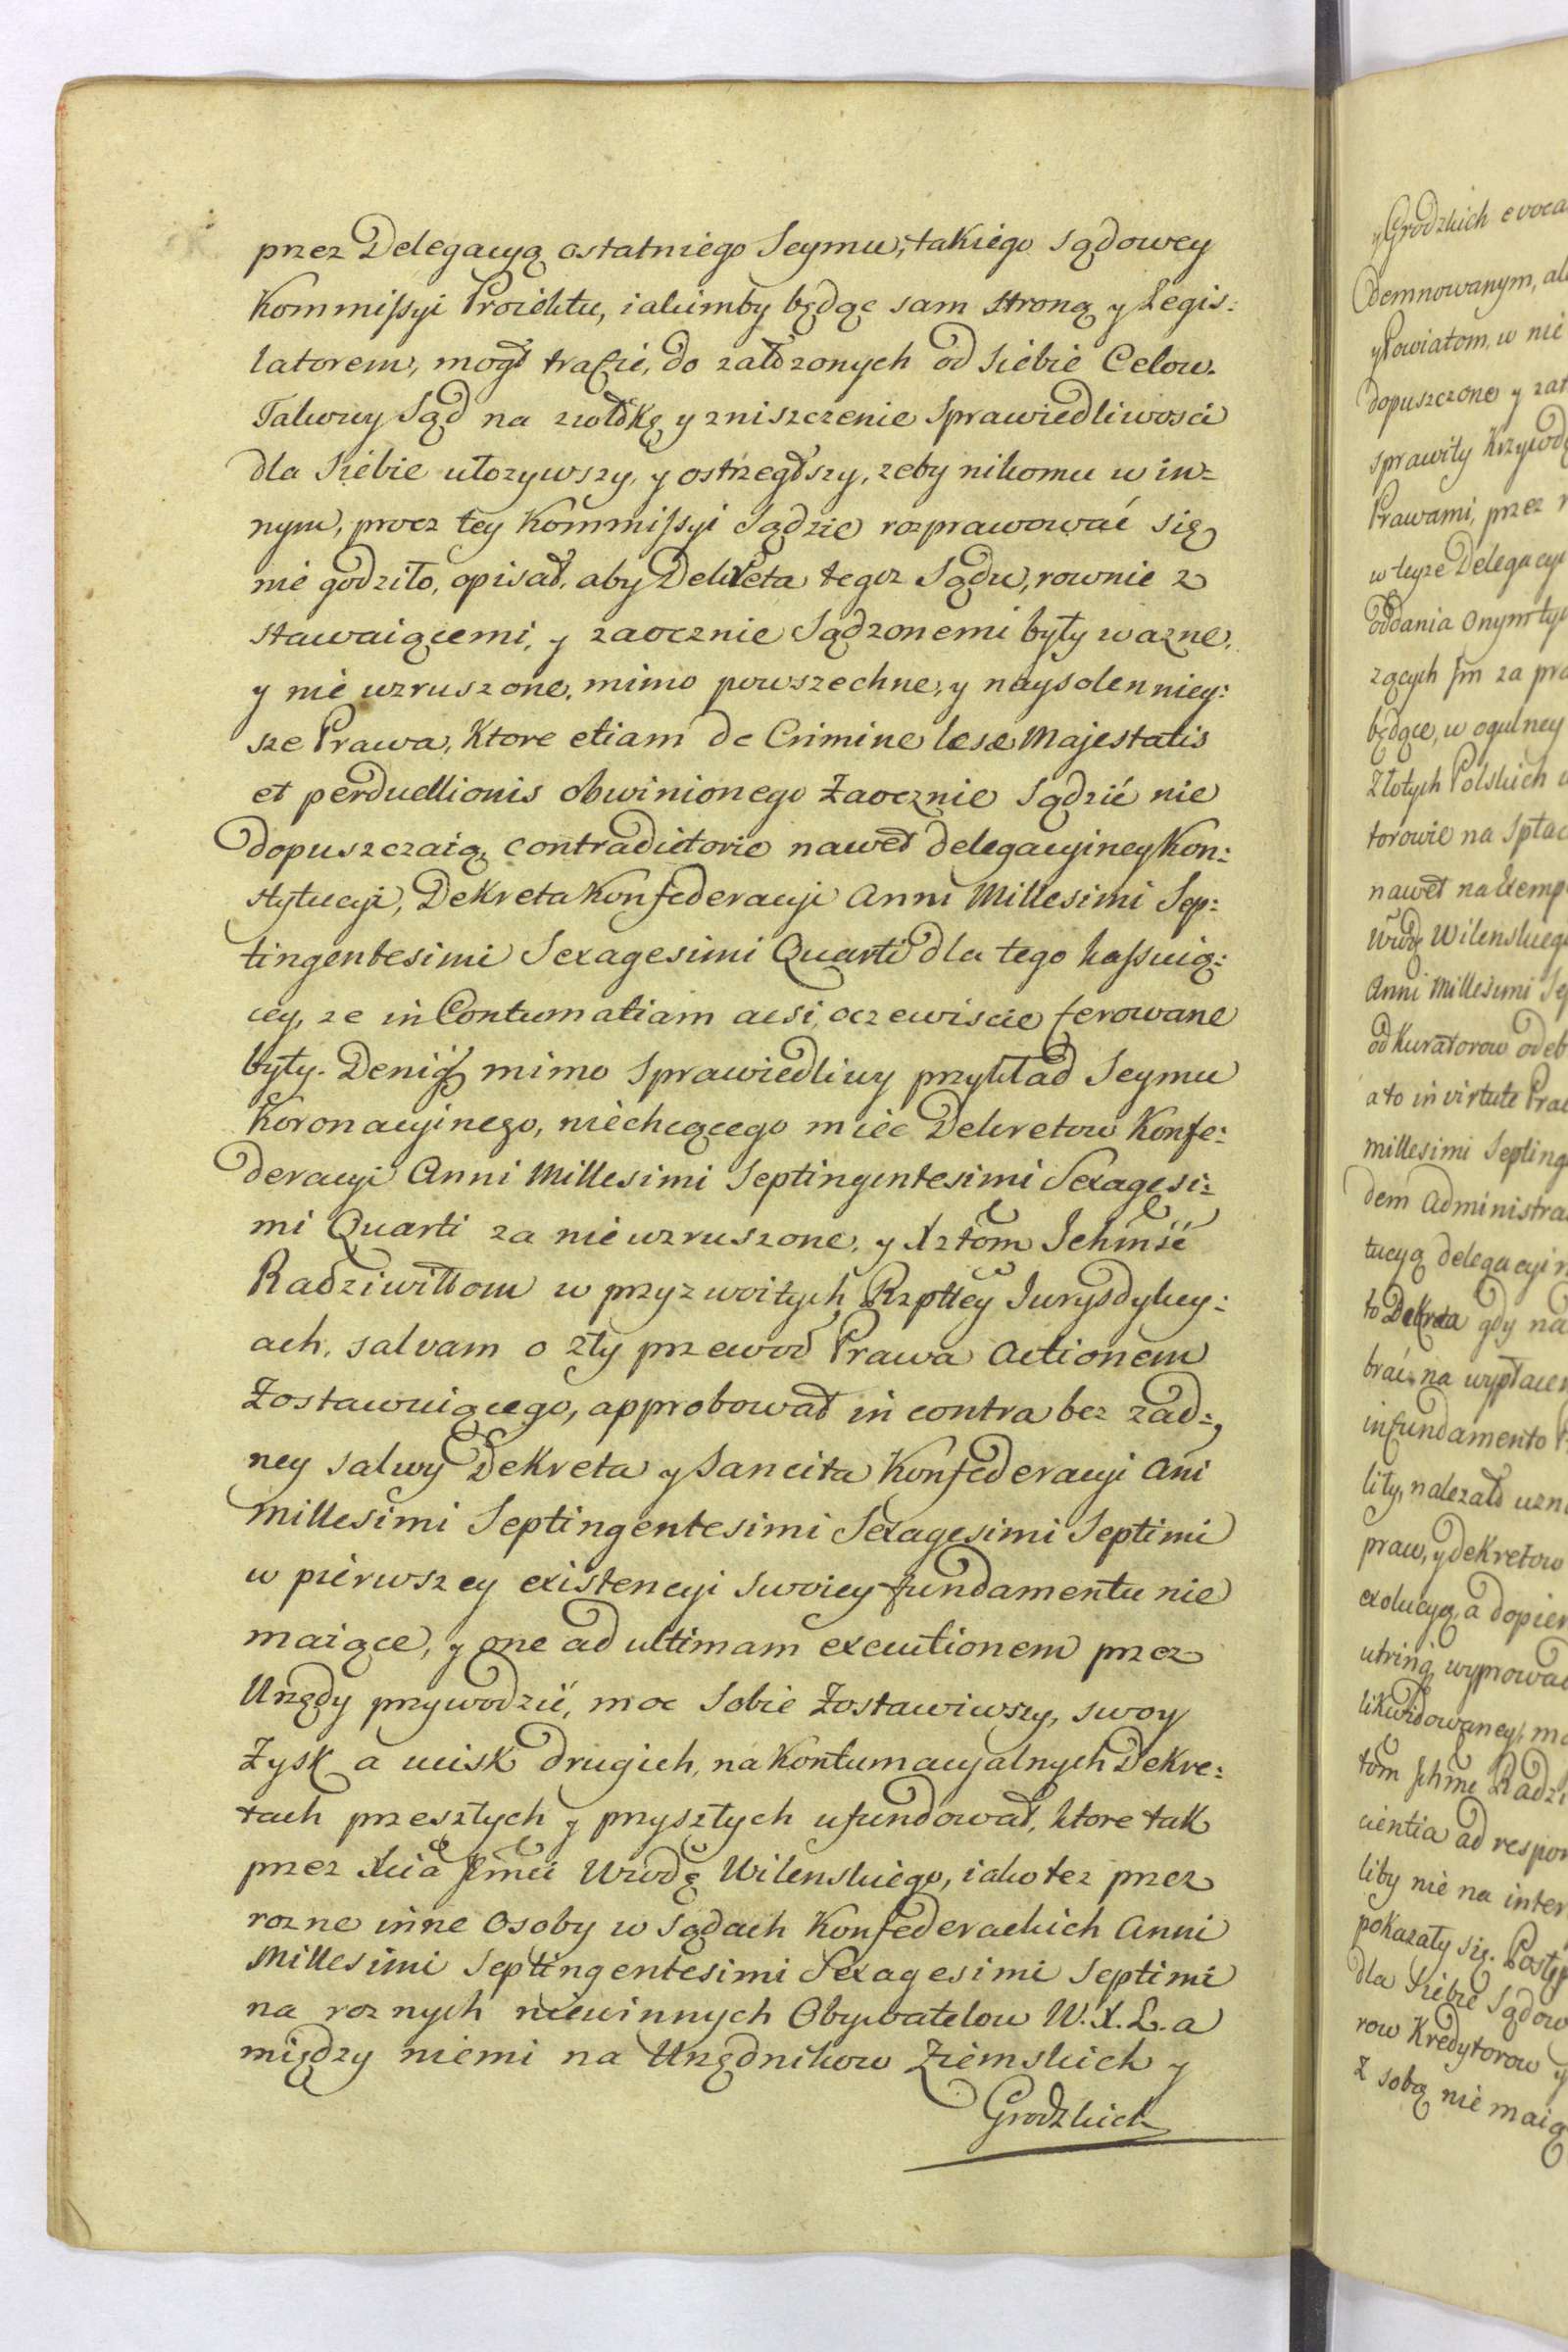 przez Delegacyą ostatniego Seymu, takiego sądowey
Kommissyi Proiektu, iakimby będąc sam stroną y Legis:
latorem, mogł trafić, do założonych od siebie Celow.
Takowy Sąd na zwłokę y zniszczenie sprawiedliwosci
dla siebie ułozywszy, y ostrzegłszy, zeby nikomu w in=
nym, procz tey Kommissyi Sądzie rozprawować się
nie godziło, opisał, aby Dekreta tegoz Sądu, rownie z
stawaiącemi, y zaocznie Sądzonemi były wazne,
y nie wzruszone, mimo powszechne, y naysolenniey:
sze Prawa, Ktore etiam de Crimine læsæ Majestatis
et perduellionis obwinionego Zaocznie Sądzić nie
dopuszczaią, contradictorie nawet delegacyiney Kon:
stytucyi, Dekreta Konfederacyi Anni Millesimi Sep:
tingentesimi Sexagesimi Quarti dla tego kassuią:
cey, ze in Contumatiam acsi oczewiscie ferowane
były. Deniq mimo sprawiedliwy przykład Seymu
Koronacyinego, niechcącego miec Dekretow Konfe:
deracyi Anni Millesimi Septingentesimi Sexagesi:
mi Quarti za nie wzruszone, y Xztom Ichmść
Radziwiłłom w przyzwoitych Rzpltey Jurysdykcy:
ach, salvam o zły przewod Prawa Actionem
Zostawuiącego, approbował in contra bez zad:
ney salwy Dekreta y Sancita Konfederacyi Ani
Millesimi Septingentesimi Sexagesimi Septimi
w pierwszey existencyi swoiey fundamentu nie
maiące, y one ad ultimam executionem przez
Urzędy przywodzić, moc sobie Zostawiwszy, swoy
Zysk a ucisk drugich, na Kontumacyalnych Dekre:
tach przeszłych y przyszłych ufundował, ktore tak
przez Xcia Jmci Wwodę Wilenskiego, iako tez przez
rozne inne Osoby w Sądach Konfederackich Anni
Millesimi Septingentesimi Sexagesimi Septimi
na roznych niewinnych Obywatelow W. X. L. a
między niemi na Urzędnikow Ziemskich y
Grodzkich
y Grodzkich evoca
demnowanym, al
y Powiatom, w nie
dopuszczone y zat
sprawiły Krzywdę
Prawami, przez
w teyze Delegacyi
oddania onym ty
zących Im za pra
będące, w ogulney
Złotych Polskich
torowie na Spłac
nawet na Exemp
Wwdę Wilenskiego
Anni Millesimi Sep
od Kuratorow odeb
a to in virtute Praw
millesimi Septing
dem Administra
tucyą delegacyin
to Dekreta gdy na
brać, na wypłacen
in fundamento
lity, nalezało uzn
praw, y dekretow
exolucyą, a dopier
utrinq wyprowad
likwidowaney, mo
tom Jchmc Radzi
cientia ad respon
liby nie na inter
pokazały się. Postęp
dla siebie Sądow
row Kredytorow y
Z sobą nie maią